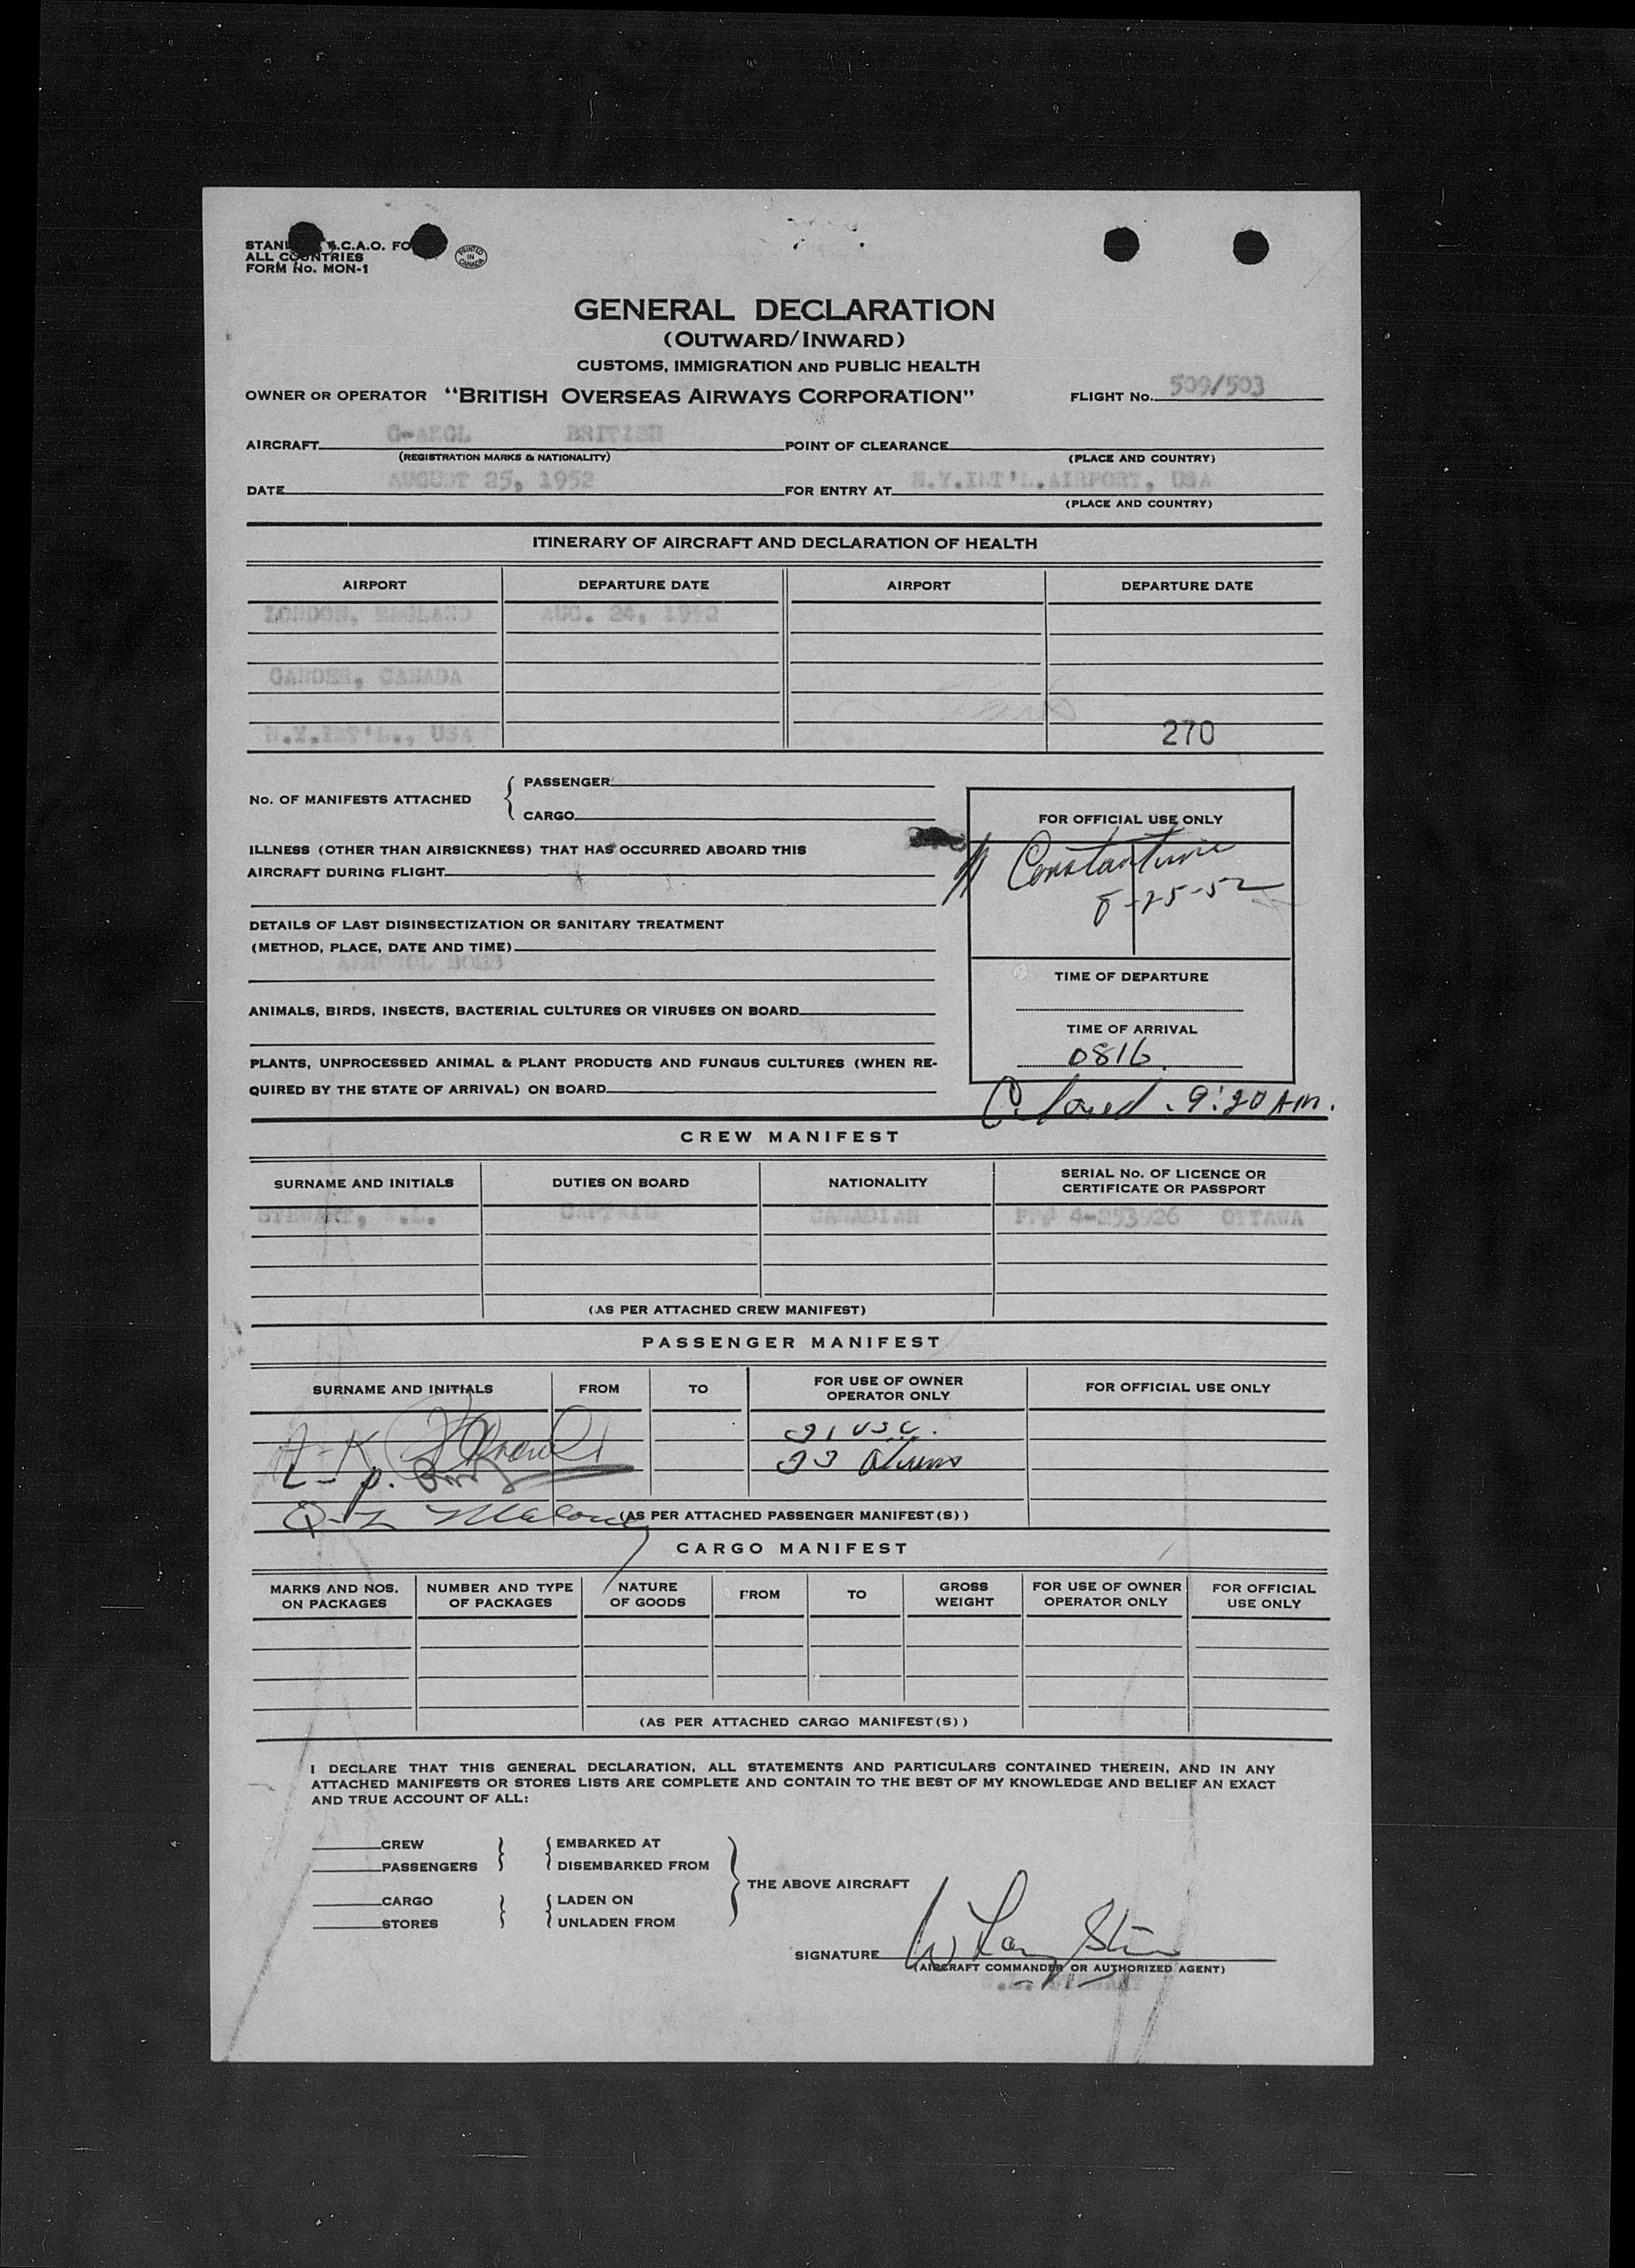 ALL COUNTRIES
FORM No. MON-1
PRINTED IN CANADA
GENERAL DECLARATION
(OUTWARD/INWARD)
CUSTOMS, IMMIGRATION AND PUBLIC HEALTH
OWNER OR OPERATOR "BRITISH OVERSEAS AIRWAYS CORPORATION" FLIGHT No. 509/503
AIRCRAFT BRITISH POINT OF CLEARANCE
(REGISTRATION MARKS & NATIONALITY) (PLACE AND COUNTRY)
DATE AUGUST 25, 1952 FOR ENTRY AT N.Y.INT'L.AIRPORT, USA
(PLACE AND COUNTRY)
ITINERARY OF AIRCRAFT AND DECLARATION OF HEALTH
AIRPORT DEPARTURE DATE AIRPORT DEPARTURE DATE
LONDON, ENGLAND AUG. 24, 1952
GANDER, CANADA
N.Y.INT'L., USA 270
PASSENGER
No. OF MANIFESTS ATTACHED
CARGO
FOR OFFICIAL USE ONLY
Constantine
8-25-52
ILLNESS (OTHER THAN AIRSICKNESS) THAT HAS OCCURRED ABOARD THIS
AIRCRAFT DURING FLIGHT
DETAILS OF LAST DISINSECTIZATION OR SANITARY TREATMENT
(METHOD, PLACE, DATE AND TIME)
AEROSOL BOMB
TIME OF DEPARTURE
ANIMALS, BIRDS, INSECTS, BACTERIAL CULTURES OR VIRUSES ON BOARD
TIME OF ARRIVAL
0816
PLANTS, UNPROCESSED ANIMAL & PLANT PRODUCTS AND FUNGUS CULTURES (WHEN RE-
QUIRED BY THE STATE OF ARRIVAL) ON BOARD
Closed. 9:20 AM.
CREW MANIFEST
SURNAME AND INITIALS DUTIES ON BOARD NATIONALITY SERIAL No. OF LICENCE OR
CERTIFICATE OR PASSPORT
STEWART, W.L. CAPTAIN CANADIAN PP# 4-253926 OTTAWA
(AS PER ATTACHED CREW MANIFEST)
PASSENGER MANIFEST
SURNAME AND INITIALS FROM TO FOR USE OF OWNER
OPERATOR ONLY FOR OFFICIAL USE ONLY
A-K 31 USC.
L-P. 33 Aliens
Q-Z Maloney (AS PER ATTACHED PASSENGER MANIFEST(S))
CARGO MANIFEST
MARKS AND NOS.
ON PACKAGES NUMBER AND TYPE
OF PACKAGES NATURE
OF GOODS FROM TO GROSS
WEIGHT FOR USE OF OWNER
OPERATOR ONLY FOR OFFICIAL
USE ONLY
(AS PER ATTACHED CARGO MANIFEST(S))
I DECLARE THAT THIS GENERAL DECLARATION, ALL STATEMENTS AND PARTICULARS CONTAINED THEREIN, AND IN ANY
ATTACHED MANIFESTS OR STORES LISTS ARE COMPLETE AND CONTAIN TO THE BEST OF MY KNOWLEDGE AND BELIEF AN EXACT
AND TRUE ACCOUNT OF ALL:
CREW EMBARKED AT
PASSENGERS DISEMBARKED FROM
THE ABOVE AIRCRAFT
CARGO LADEN ON
STORES UNLADEN FROM
SIGNATURE
(AIRCRAFT COMMANDER OR AUTHORIZED AGENT)